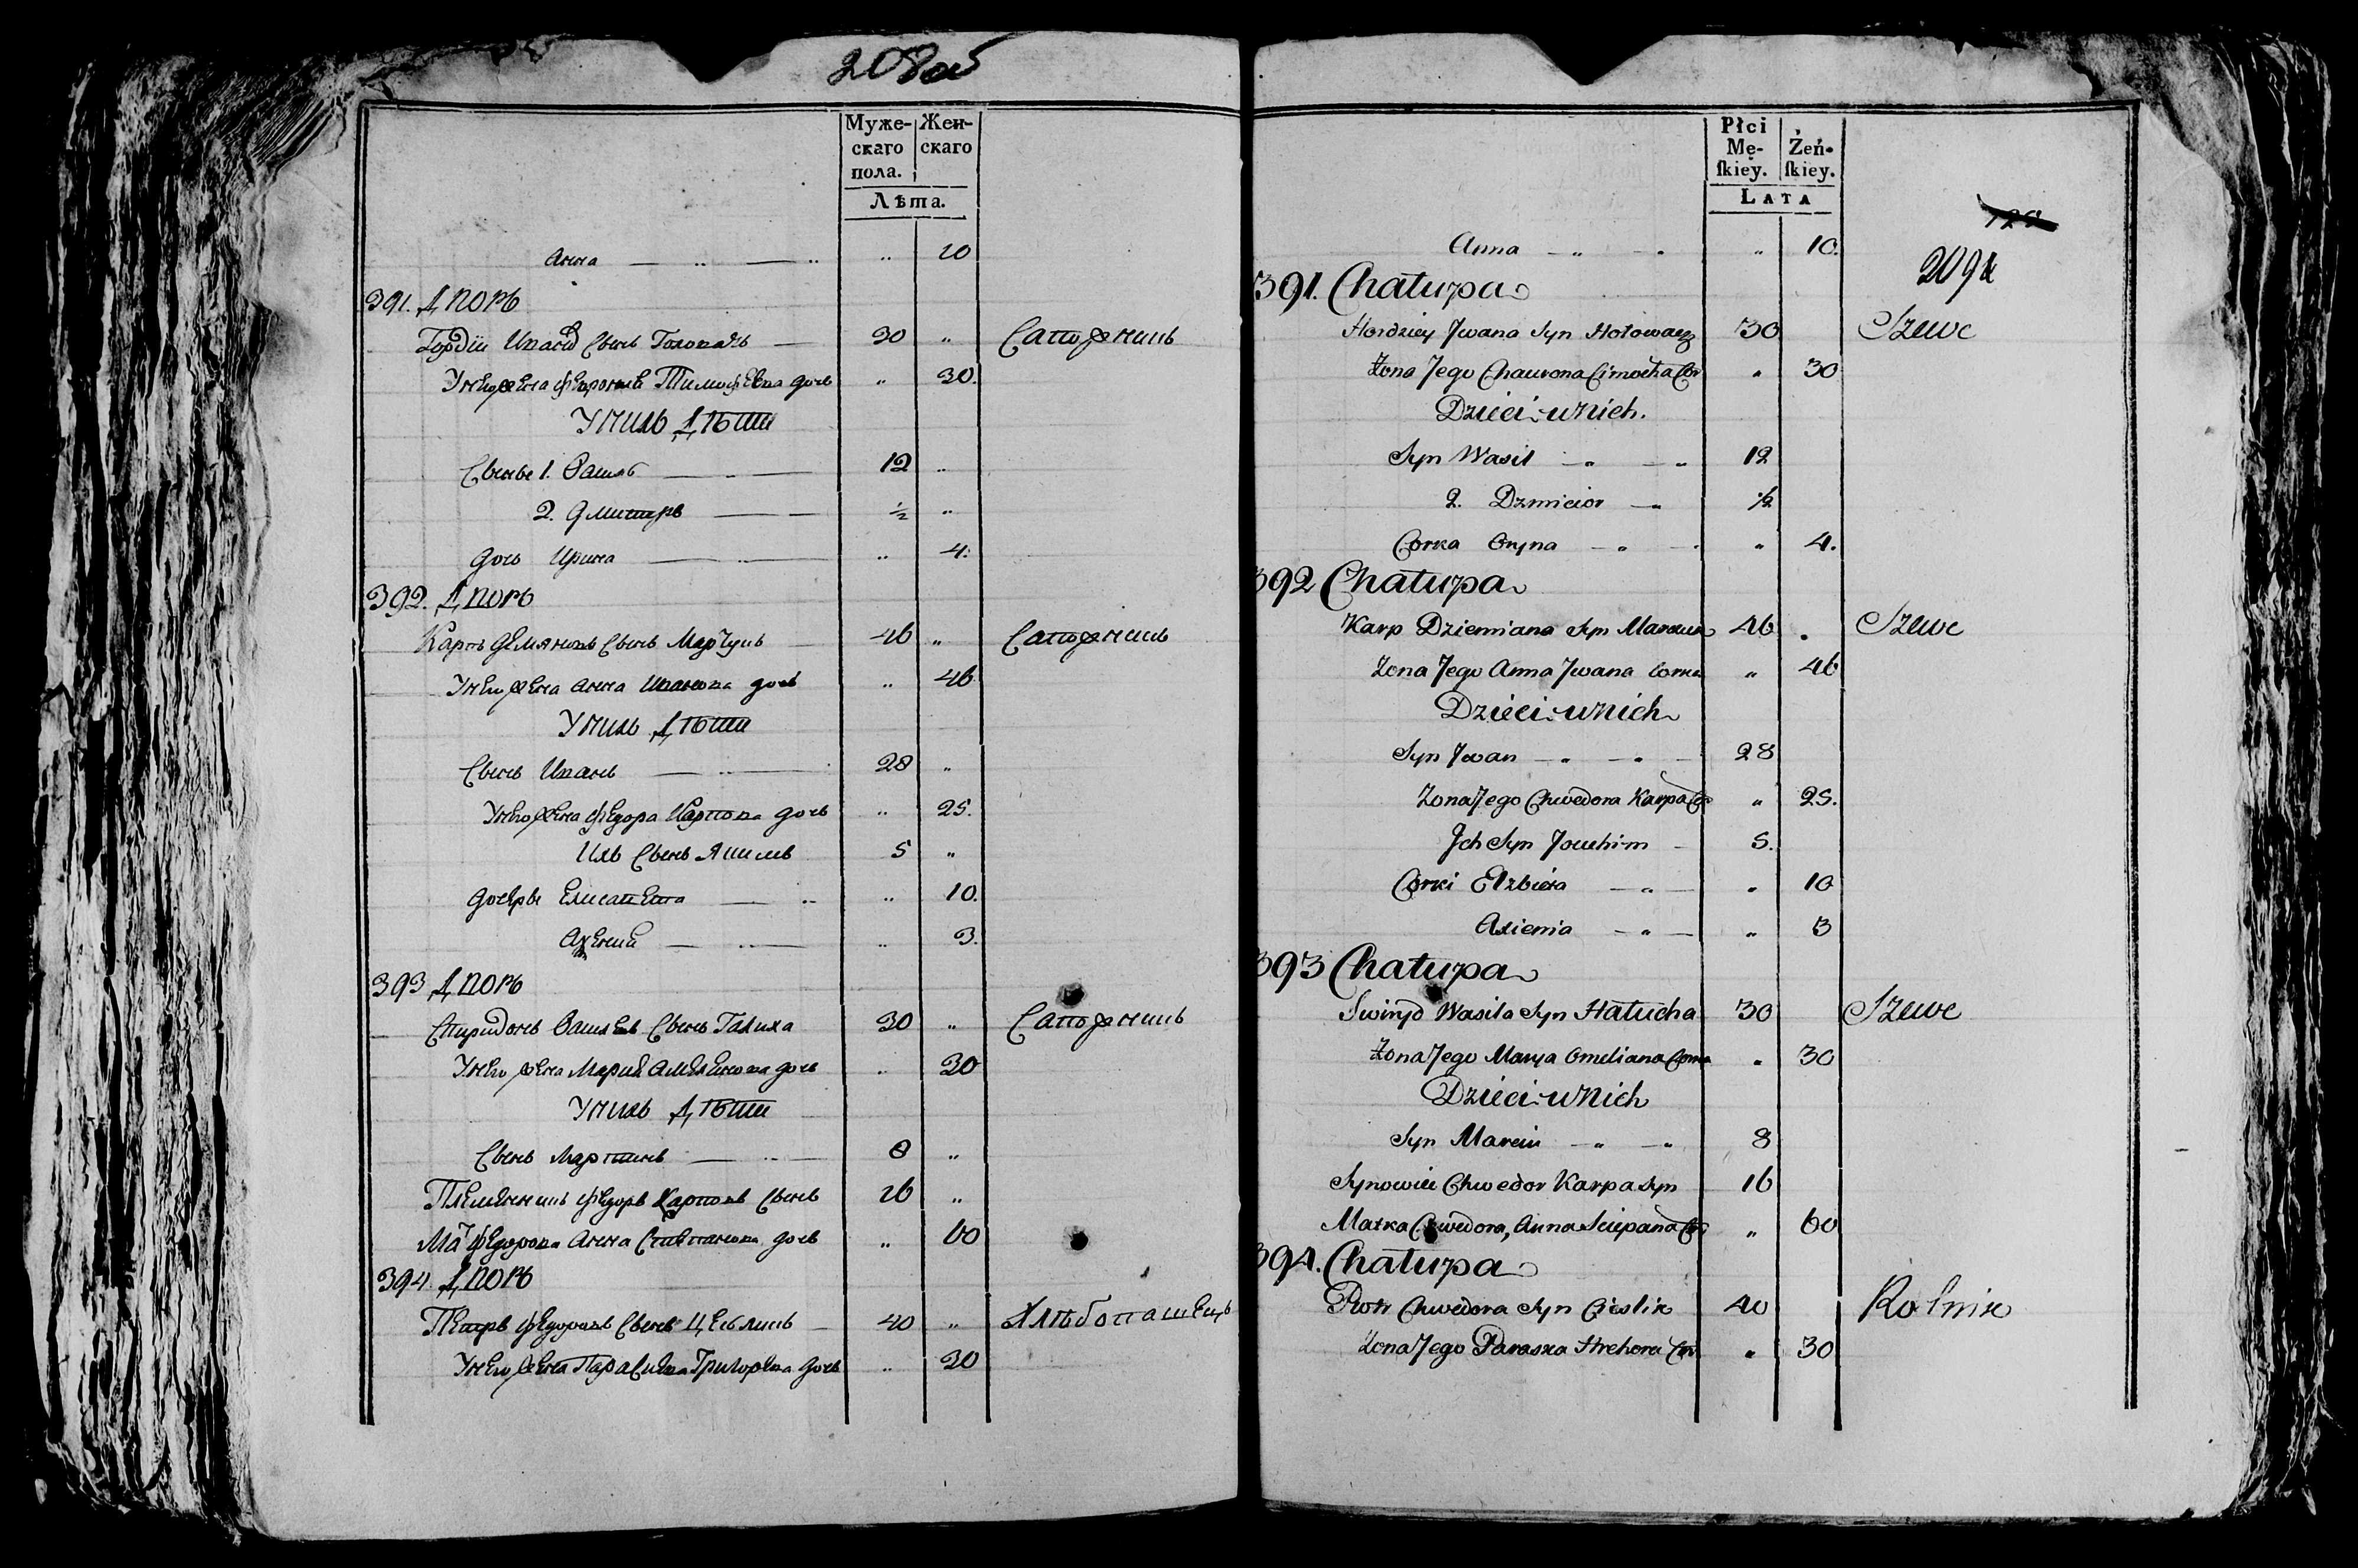 208об
Муже-
скаго
пола.
Жен-
скаго
Лѣта.
Анна — „ — „ „ 10
391. Дворъ
Гордій Ивановъ Сынъ Головачъ — 30 „ Сапожникъ
У него жена Февронія Тимофеева дочь „ 30.
У нихъ Дѣти
Сынъе 1. Василь — 12 „
2. Дмитръ — ½ „
дочь Ирина — „ 4.
392. Дворъ
Карпъ Демяновъ Сынъ Марчукъ 46 „ Сапожникъ
У него жена Анна Иванова дочь „ 46
У нихъ Дѣти
Сынъ Иванъ — 28 „
У него жена Федора Карпова дочь „ 25.
Ихъ Сынъ Якимъ 5 „
дочеры Елисавета — „ 10.
Аксенія — „ 3.
393 Дворъ
Спиридонъ Василевъ Сынъ Галуха 30 „ Сапожникъ
У него жена Марія Амелянова дочь „ 30
У нихъ Дѣти
Сынъ Мартинъ — 8 „
Племянникъ Федоръ Карповъ Сынъ 16 „
Мать Федорова Анна Степанова дочь „ 60
394. Дворъ
Петръ Федоровъ Сынъ Цесликъ — 40 „ Хлѣбопашецъ
У него жена Парасковья Григорева дочь „ 30
Płci
Mę-
ſkiey.
Żeń-
ſkiey.
LATA
209
Anna — „ — „ „ 10.
391. Chałupa
Hordziey Jwana Syn Hołowacz 30 Szewc
Żona Jego Chaurona Cimocha Cor „ 30
Dzieci u nich.
Syn Wasil — „ — „ 12
2. Dzmicior — „ ½
Corka Oryna — „ „ 4.
392 Chałupa
Karp Dziemiana Syn Marczuk 46 „ Szewc
Żona Jego Anna Jwana Corka „ 46
Dzieci u nich
Syn Jwan — „ — „ 28
Żona Jego Chwedora Karpa Cor „ 25.
Jch Syn Jouchim — 5.
Corki Elzbieta — „ — „ 10
Axienia — „ — „ 3
393 Chałupa
Swiryd Wasila Syn Hałucha 30 Szewc
Żona Jego Marya Omeliana Corka „ 30
Dzieci u nich
Syn Marcin — „ — „ 8
Synowiec Chwedor Karpa Syn 16
Matka Chwedora, Anna Sciepana Cor „ 60
394. Chałupa
Piotr Chwedora Syn Cieslik 40 Rolnik
Żona Jego Paraska Hrehora Cor. „ 30